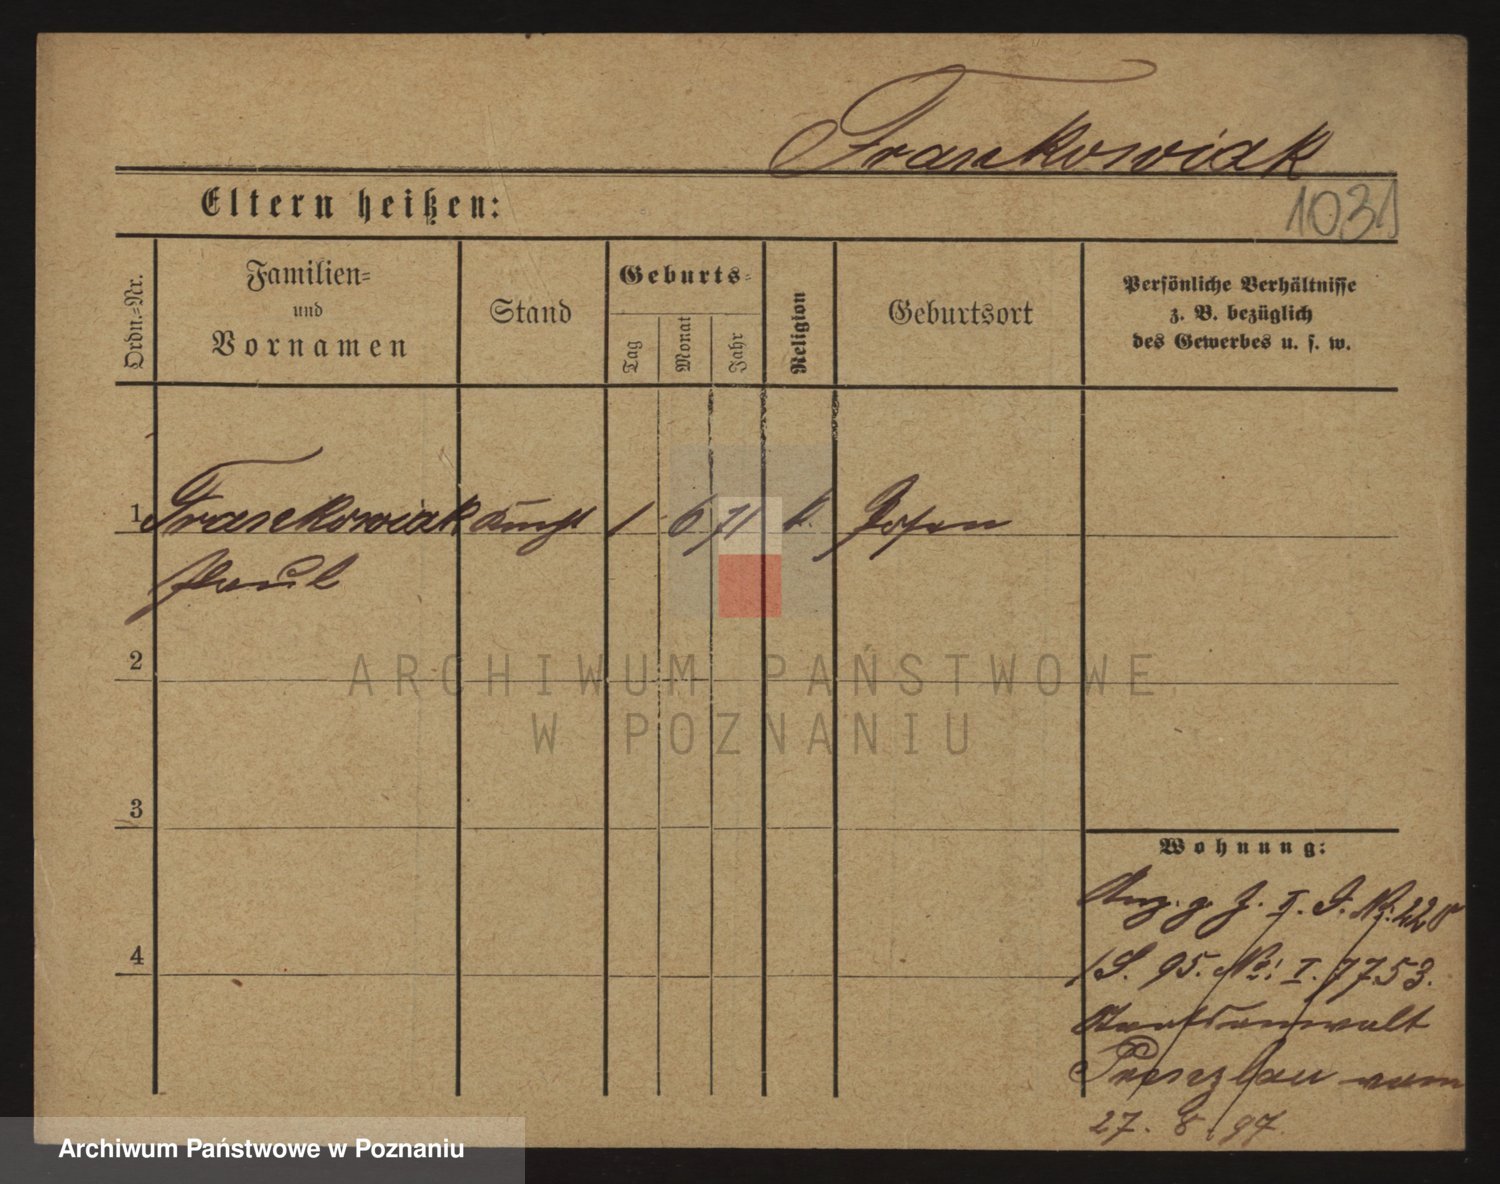 Frankowiak
Eltern heißen:
1031
Ordn.-Nr.
Familien-
und
Vornamen
Stand
Geburts-
Tag
Monat
Jahr
Religion
Geburtsort
Persönliche Verhältnisse
z. B. bezüglich
des Gewerbes u. s. w.
1 Frankowiak Knecht 1 6 71 k. Posen
Paul
2
ARCHIWUM PAŃSTWOWE
W POZNANIU
3
Wohnung:
g. J. I. J. No: 220
95. No: I. 7753.
4
Staatsanwalt
Prenzlau vom
27. 8. 97.
Archiwum Państwowe w Poznaniu